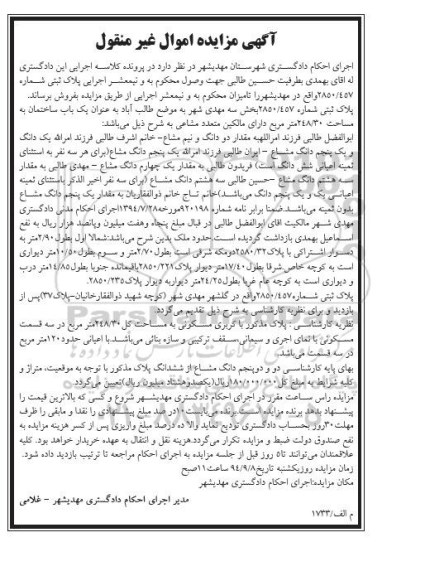 آگهی مزایده اموال غیر منقول
اجرای احکام دادگستری شهرستان مهدیشهر در نظر دارد در پرونده کلاسه اجرایی این دادگستری
له اقای بهمدی بطرفیت حسین طالبی جهت وصول محکوم به و نیمعشر اجرایی پلاک ثبتی شماره
۲۸۵۰/۴۵۷واقع در مهدیشهررا تامیزان محکوم به و نیمعشر اجرایی از طریق مزایده بفروش برساند.
پلاک ثبتی شماره ۲۸۵۰/۴۵۷بخش سه مهدی شهر به موضع طالب آباد به عنوان یک باب ساختمان به
مساحت ۲۴۸/۳۰متر مربع دارای مالکین متعدد مشاعی به شرح ذیل می‌باشد:
ابوالفضل طالبی فرزند امراللهبه مقدار دو دانگ و نیم مشاع- خانم اشرف طالبی فرزند امرالله یک دانگ
و یک پنجم دانگ مشاع - ایران طالبی فرزند امرالله یک پنجم دانگ مشاع(برای هر سه نفر به استثنای
ثمینه اعیانی شش دانگ است) فریدون طالبی به مقدار یک چهارم دانگ مشاع - مهدی طالبی به مقدار
سه هشتم دانگ مشاع -حسین طالبی سه هشتم دانگ مشاع (برای سه نفر اخیر الذکر باستثنای ثمینه
اعیانی یک و یک پنجم دانگ می‌باشد)خانم تاج خانم ذوالفقاریان به مقدار یک پنجم دانگ مشاع
بدون ثمینه می‌باشد.ضمنا برابر نامه شماره ۹۲۰۱۹۸مورخه۱۳۹۴/۷/۲۸اجرای احکام مدنی دادگستری
مهدی شهر مالکیت اقای ابوالفضل طالبی در قبال مبلغ پنجاه وهفت میلیون وپانصد هزار ریال به نفع
اسماعیل بهمدی بازداشت گردیده است.حدود ملک بدین شرح می‌باشد:شمالا اول بطول۲/۹۰متر به
دیوار اشتراکی با پلاک۲۵۸۰/۳۲دومکه شرقی است بطول۲/۷۰متر و سوم بطول۱۰/۵۰متر دیواری
است به کوچه خاص شرقا بطول۱۷/۴۰متر دیوار پلاک۲۸۵۰/۲۲۱باقیمانده جنوبا بطول۱۴/۸۵متر درب
و دیواری است به کوچه عام غربا بطول۲۴/۲۵متر دیواربه دیوار پلاک۲۸۵۰/۲۳۵.
پلاک ثبتی شماره۲۸۵۰/۴۵۷واقع در گلشهر مهدی شهر (کوچه شهید ذوالفقارخانیان-پلاک۳۷)پس از
بازدید و برای نظریه کارشناسی به شرح ذیل تقدیم می‌گردد.
نظریه کارشناسی : پلاک مذکور با کاربری مسکونی به مساحت کل ۲۴۸/۳۰متر مربع در سه قسمت
مسکونی با نمای اجری و سیمانی،سقف ترکیبی و سازه بنائی می‌باشد.با اعیانی حدود۱۲۰متر مربع
در سه قسمت می‌باشد.
بهای پایه کارشناسی دو و دوپنجم دانگ مشاع از ششدانگ پلاک مذکور با توجه به موقعیت، متراژ و
کلیه شرایط به مبلغ کل۱۸۰/۰۰۰/۰۰۰ریال(یکصدوهشتاد میلیون ریال)تعیین می‌گردد
مزایده راس ساعت مقرر در اجرای احکام دادگستری مهدیشهر شروع و کسی که بالاترین قیمت را
پیشنهاد بدهد برنده مزایده است.برنده می‌بایست ۱۰در صد مبلغ پیشنهادی را نقدا و مابقی را ظرف
مهلت۳۰روز بحساب دادگستری تودیع نماید والا ده درصد مبلغ واریزی پس از کسر هزینه مزایده به
نفع صندوق دولت ضبط و مزایده تکرار می‌گردد.هزینه نقل و انتقال به عهده خریدار خواهد بود. کلیه
علاقمندان می‌توانند تا۵ روز قبل از جلسه مزایده به اجرای احکام مراجعه تا ترتیب بازدید داده شود.
زمان مزایده روزیکشنبه تاریخ۹۴/۹/۸ ساعت۱۱صبح
مکان مزایده:اجرای احکام دادگستری مهدیشهر
مدیر اجرای احکام دادگستری مهدیشهر - غلامی
م الف/۱۷۳۳